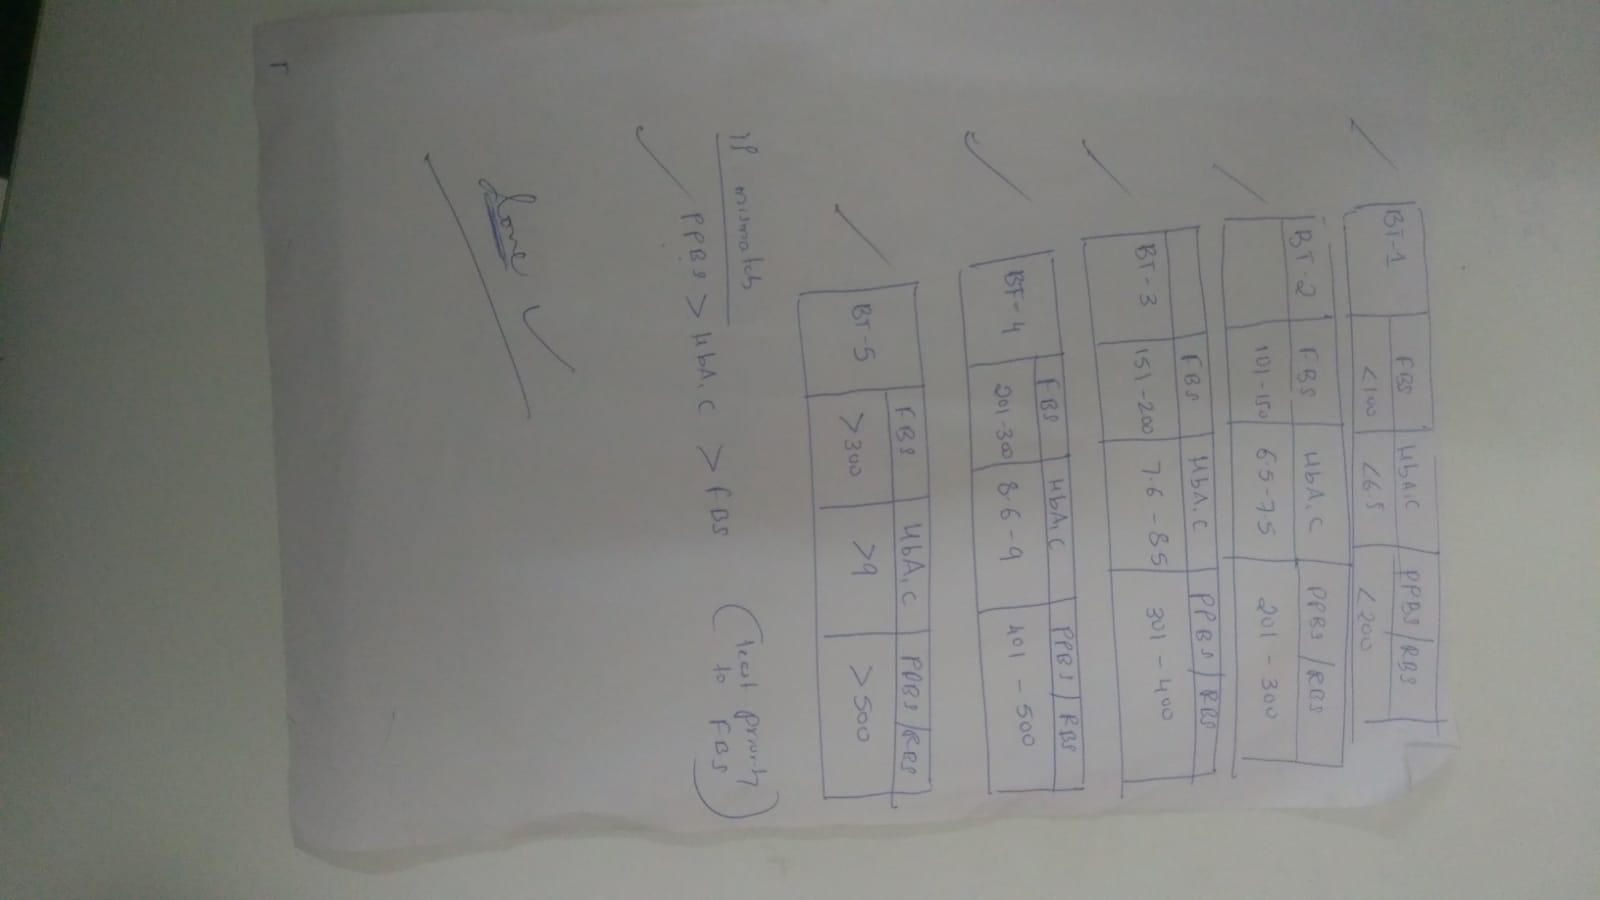 BT-1 FBS HbA1C PPBS/RBS
<100 <6.5 <200
BT-2 FBS HbA1C PPBS/RBS
101-150 6.5-7.5 201-300
FBS HbA1C PPBS/RBS
BT-3 151-200 7.6-8.5 301-400
FBS HbA1C PPBS/RBS
BT-4 201-300 8.6-9 401-500
FBS HbA1C PPBS/RBS
BT-5 >300 >9 >500
If mismatch
PPBS > HbA1C > FBS (least priority
to FBS)
done ✓